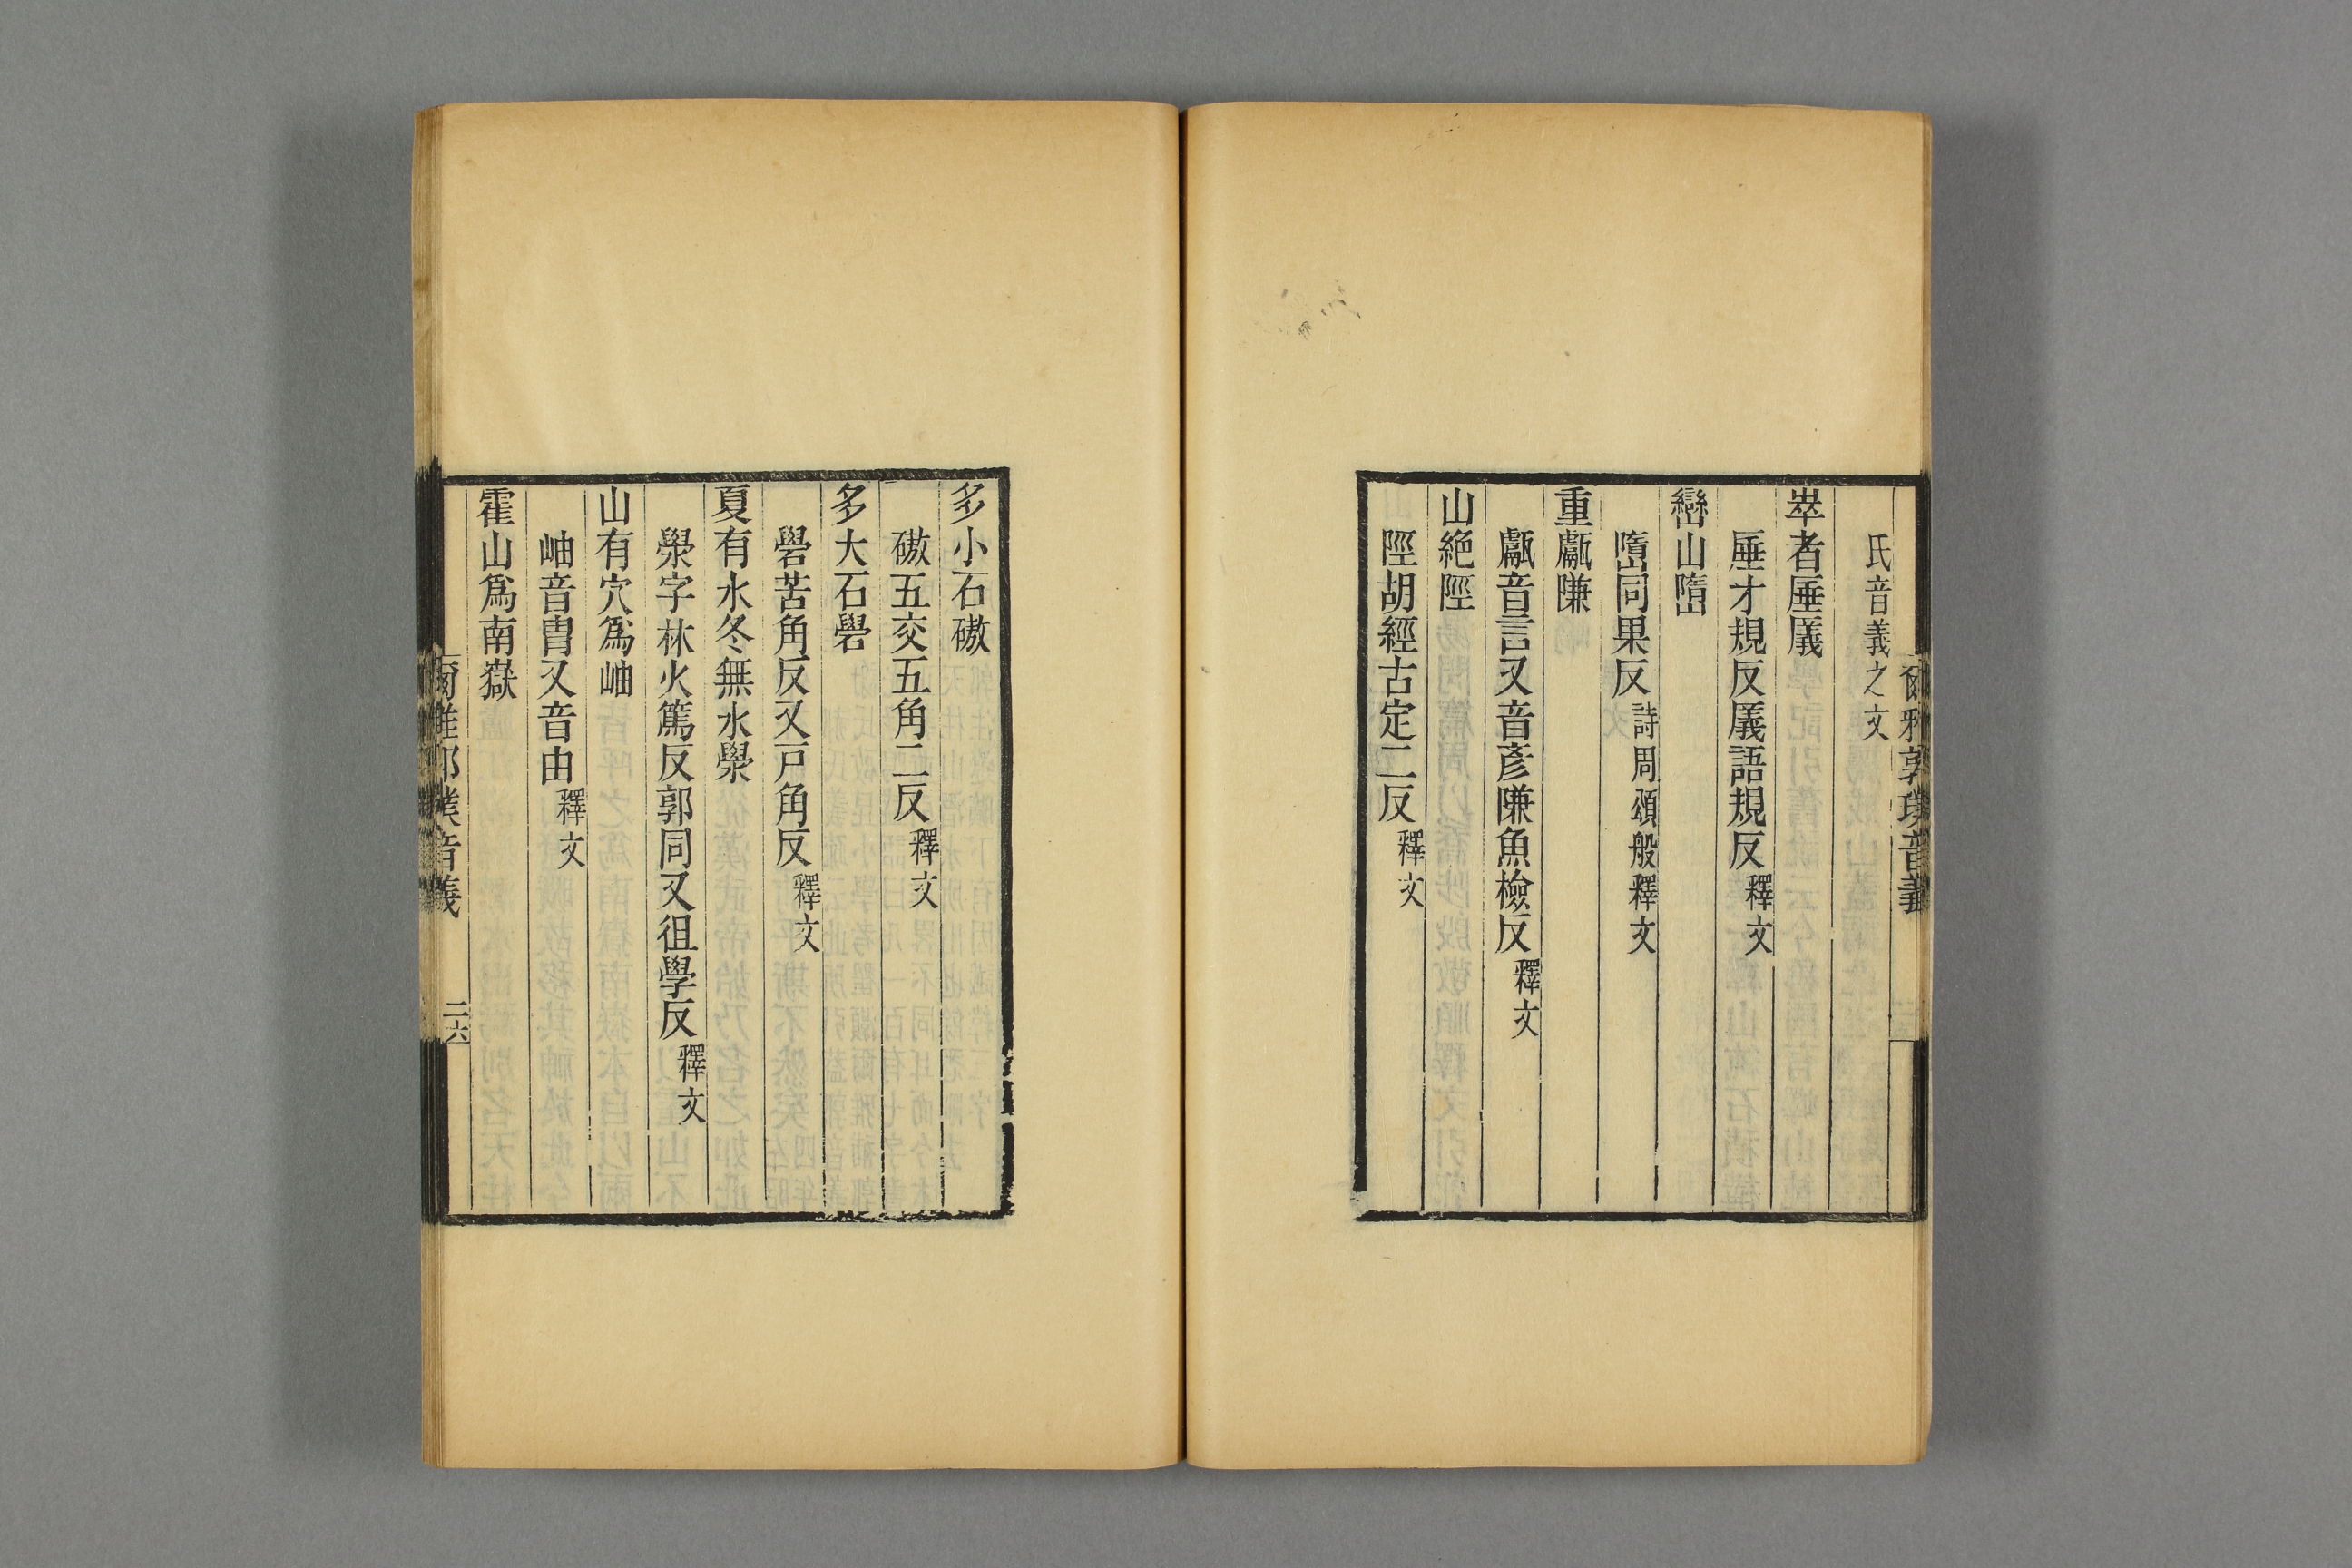 爾雅郭璞音義
氏音義之文
崒者厜㕒
厜才規反㕒語規反釋文
巒山嶞
嶞同果反詩周頌般釋文
重甗隒
甗音言又音彥隒魚檢反釋文
山絶陘
陘胡經古定二反釋文
多小石磝
磝五交五角二反釋文
多大石礐
礐苦角反又戸角反釋文
夏有水冬無水澩
澩字林火篤反郭同又徂學反釋文
山有穴爲岫
岫音胄又音由釋文
霍山爲南嶽
爾雅郭璞音義
二六